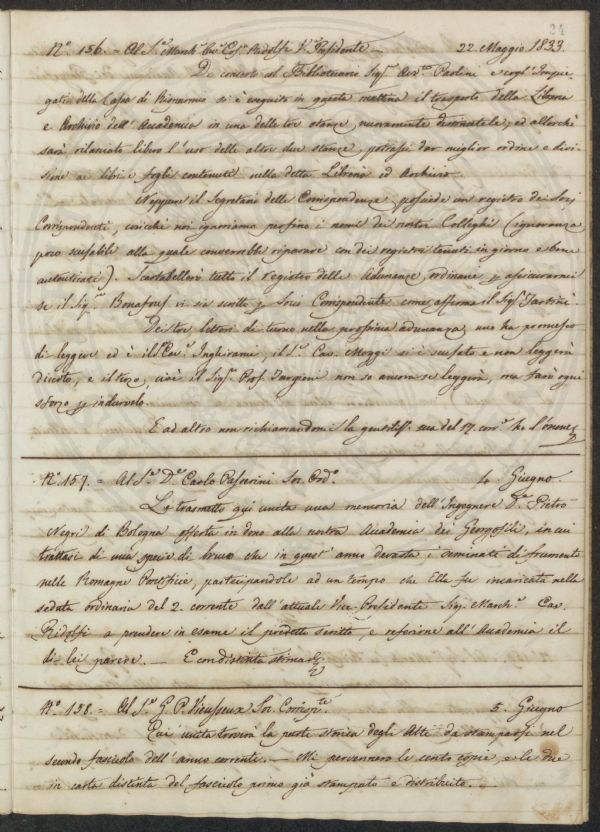 24
Nº. 156. = Al S.r March.e Cav. Cos.o Ridolfi V.e Presidente — 22 Maggio 1833
Di concerto col Bibliotecario Sig.r Avv.to Paolini e cogl' Impie
gati della Cassa di Risparmio si è eseguito in questa mattina il trasporto della Libreria
e Archivio dell' Accademia in una delle tre stanze nuovamente destinatele, ed allorchè
sarà rilasciato libero l'uso delle altre due stanze, potrassi dar miglior ordine e divi
sione ai libri e fogli contenuti nella detta Libreria ed Archivio.
Neppure il Segretario delle Corrispondenze possiede un registro dei Socj
Corrispondenti, cosicchè noi ignoriamo persino i nomi dei nostri Colleghi (ignoranza
poco scusabile alla quale converrebbe riparare con dei registri tenuti in giorno e bene
autenticati). Scartabellerò tutto il registro delle Adunanze ordinarie p assicurarmi
se il Sig.r Bonafous vi sia scritto p Socio Corrispondente come afferma il Sig.r Tartini.
Dei tre lettori di turno nella prossima adunanza, uno ha promesso
di leggere ed è il S.r Cav.e Inghirami, il S.r Cav. Moggi si è scusato e non leggerà
di certo, e il terzo, cioè il Sig.r Prof. Targioni non so ancora se leggerà, ma farò ogni
sforzo p indurvelo.
E ad altro non richiamandomi la gentiliss. sua del 19. corr.e ho l'onore
Nº. 157. = Al S.r D.r Carlo Passerini Soc. Ord.o 4. Giugno.
Le trasmetto qui unita una memoria dell' Ingegnere D.r Pietro
Negri di Bologna offerta in dono alla nostra Accademia dei Georgofili, in cui
trattasi di una specie di bruco che in quest' anno devasta i seminati di frumento
nelle Romagne Pontificie, partecipandole ad un tempo che Ella fu incaricata nella
seduta ordinaria del 2. corrente dall' attuale Vice-Presidente Sig. March.e Cav.
Ridolfi a prendere in esame il predetto scritto, e referirne all' Accademia il
di lei parere. — E con distinta stima
Nº. 158. = Al S.r G. P. Vieusseux Soc. Corrisp.te 5. Giugno
Qui unita troverà la parte storica degli Atti da stamparsi nel
secondo fascicolo dell' anno corrente. — Mi pervennero le cento copie, e le due
in carta distinta del fascicolo primo già stampato e distribuito. —